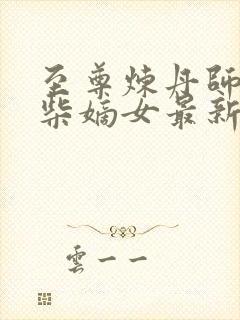 至尊煉丹師
柴嫡女最新
雲一一